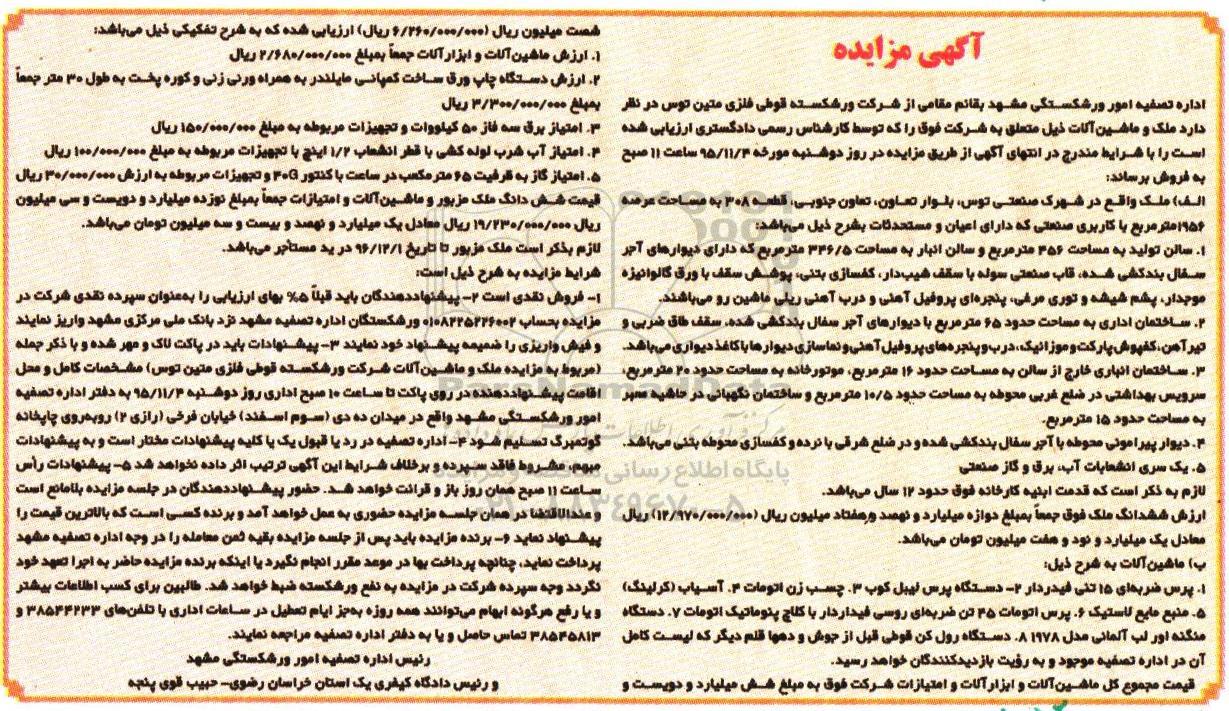 آگهی مزایده
اداره تصفیه امور ورشکستگی مشهد بقائم مقامی از شرکت ورشکسته قوطی فلزی متین توس در نظر
دارد ملک و ماشین‌آلات ذیل متعلق به شرکت فوق را که توسط کارشناس رسمی دادگستری ارزیابی شده
است را با شرایط مندرج در انتهای آگهی از طریق مزایده در روز دوشنبه مورخه ۹۵/۱۱/۴ ساعت ۱۱ صبح
به فروش برساند:
الف) ملک واقع در شهرک صنعتی توس، بلوار تعاون، تعاون جنوبی، قطعه ۳۰۸ به مساحت عرصه
۱۹۵۶مترمربع با کاربری صنعتی که دارای اعیان و مستحدثات بشرح ذیل می‌باشد:
۱. سالن تولید به مساحت ۳۵۶ مترمربع و سالن انبار به مساحت ۳۳۶/۵ مترمربع که دارای دیوارهای آجر
سفال بندکشی شده، قاب صنعتی سوله با سقف شیب‌دار، کفسازی بتنی، پوشش سقف با ورق گالوانیزه
موجدار، پشم شیشه و توری مرغی، پنجره‌ای پروفیل آهنی و درب آهنی ریلی ماشین رو می‌باشند.
۲. ساختمان اداری به مساحت حدود ۶۵ مترمربع با دیوارهای آجر سفال بندکشی شده، سقف طاق ضربی و
تیرآهن، کفپوش پارکت و موزائیک، درب و پنجره‌های پروفیل آهنی و نماسازی دیوارها با کاغذ دیواری می‌باشد.
۳. ساختمان انباری خارج از سالن به مساحت حدود ۱۶ مترمربع، موتورخانه به مساحت حدود ۲۰ مترمربع،
سرویس بهداشتی در ضلع غربی محوطه به مساحت حدود ۱۰/۵ مترمربع و ساختمان نگهبانی در حاشیه معبر
به مساحت حدود ۱۵ مترمربع.
۴. دیوار پیرامونی محوطه با آجر سفال بندکشی شده و در ضلع شرقی با نرده و کفسازی محوطه بتنی می‌باشد.
۵. یک سری انشعابات آب، برق و گاز صنعتی
لازم به ذکر است که قدمت ابنیه کارخانه فوق حدود ۱۲ سال می‌باشد.
ارزش ششدانگ ملک فوق جمعاً بمبلغ دوازه میلیارد و نهصد و هفتاد میلیون ریال (۱۲/۹۷۰/۰۰۰/۰۰۰) ریال
معادل یک میلیارد و نود و هفت میلیون تومان می‌باشد.
ب) ماشین‌آلات به شرح ذیل:
۱. پرس ضربه‌ای ۱۵ تنی فیدردار ۲- دستگاه پرس لیبل کوب ۳. چسب زن اتومات ۴. آسیاب (کرلینگ)
۵. منبع مایع لاستیک ۶. پرس اتومات ۴۵ تن ضربه‌ای روسی فیداردار با کلاچ پنوماتیک اتومات ۷. دستگاه
منگنه اور لب آلمانی مدل ۱۹۷۸ ۸. دستگاه رول کن قوطی قبل از جوش و دهها قلم دیگر که لیست کامل
آن در اداره تصفیه موجود و به رؤیت بازدیدکنندگان خواهد رسید.
قیمت مجموع کل ماشین‌آلات و ابزارآلات و امتیازات شرکت فوق به مبلغ شش میلیارد و دویست و
شصت میلیون ریال (۶/۲۶۰/۰۰۰/۰۰۰ ریال) ارزیابی شده که به شرح تفکیکی ذیل می‌باشد:
۱. ارزش ماشین‌آلات و ابزارآلات جمعاً بمبلغ ۲/۶۸۰/۰۰۰/۰۰۰ ریال
۲. ارزش دستگاه چاپ ورق ساخت کمپانی مایلندر به همراه ورنی زنی و کوره پخت به طول ۳۰ متر جمعاً
بمبلغ ۳/۳۰۰/۰۰۰/۰۰۰ ریال
۳. امتیاز برق سه فاز ۵۰ کیلووات و تجهیزات مربوطه به مبلغ ۱۵۰/۰۰۰/۰۰۰ ریال
۴. امتیاز آب شرب لوله کشی با قطر انشعاب ۱/۲ اینچ با تجهیزات مربوطه به مبلغ ۱۰۰/۰۰۰/۰۰۰ ریال
۵. امتیاز گاز به ظرفیت ۶۵ مترمکعب در ساعت با کنتور ۴۰G و تجهیزات مربوطه به ارزش ۳۰/۰۰۰/۰۰۰ ریال
قیمت شش دانگ ملک مزبور و ماشین‌آلات و امتیازات جمعاً بمبلغ نوزده میلیارد و دویست و سی میلیون
ریال ۱۹/۲۳۰/۰۰۰/۰۰۰ ریال معادل یک میلیارد و نهصد و بیست و سه میلیون تومان می‌باشد.
لازم بذکر است ملک مزبور تا تاریخ ۹۶/۱۲/۱ در ید مستأجر می‌باشد.
شرایط مزایده به شرح ذیل است:
۱- فروش نقدی است ۲- پیشنهاددهندگان باید قبلاً ۵% بهای ارزیابی را به‌عنوان سپرده نقدی شرکت در
مزایده بحساب ۰۱۰۸۲۲۵۲۲۶۰۰۲ ورشکستگان اداره تصفیه مشهد نزد بانک ملی مرکزی مشهد واریز نمایند
و فیش واریزی را ضمیمه پیشنهاد خود نمایند ۳- پیشنهادات باید در پاکت لاک و مهر شده و با ذکر جمله
(مربوط به مزایده ملک و ماشین‌آلات شرکت ورشکسته قوطی فلزی متین توس) مشخصات کامل و محل
اقامت پیشنهاددهنده در روی پاکت تا ساعت ۱۰ صبح اداری روز دوشنبه ۹۵/۱۱/۴ به دفتر اداره تصفیه
امور ورشکستگی مشهد واقع در میدان ده دی (سوم اسفند) خیابان فرخی (رازی ۲) روبه‌روی چاپخانه
گوتمبرگ تسلیم شود ۴- اداره تصفیه در رد یا قبول یک یا کلیه پیشنهادات مختار است و به پیشنهادات
مبهم، مشروط فاقد سپرده و برخلاف شرایط این آگهی ترتیب اثر داده نخواهد شد ۵- پیشنهادات رأس
ساعت ۱۱ صبح همان روز باز و قرائت خواهد شد. حضور پیشنهاددهندگان در جلسه مزایده بلامانع است
و عندالاقتضا در همان جلسه مزایده حضوری به عمل خواهد آمد و برنده کسی است که بالاترین قیمت را
پیشنهاد نماید ۶- برنده مزایده باید پس از جلسه مزایده بقیه ثمن معامله را در وجه اداره تصفیه مشهد
پرداخت نماید، چنانچه پرداخت بها در موعد مقرر انجام نگیرد یا اینکه برنده مزایده حاضر به اجرا تعهد خود
نگردد وجه سپرده شرکت در مزایده به نفع ورشکسته ضبط خواهد شد. طالبین برای کسب اطلاعات بیشتر
و یا رفع هرگونه ابهام می‌توانند همه روزه به‌جز ایام تعطیل در ساعات اداری با تلفن‌های ۳۸۵۴۴۲۳۳ و
۳۸۵۴۵۸۱۳ تماس حاصل و یا به دفتر اداره تصفیه مراجعه نمایند.
رئیس اداره تصفیه امور ورشکستگی مشهد
و رئیس دادگاه کیفری یک استان خراسان رضوی- حبیب قوی پنجه
ParsNamadData
پایگاه اطلاع رسانی